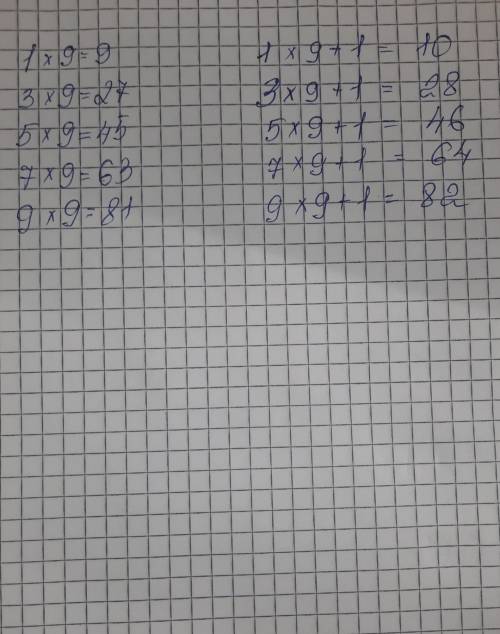 1 × 9 = 9
3 × 9 = 27
5 × 9 = 45
7 × 9 = 63
9 × 9 = 81
1 × 9 + 1 = 10
3 × 9 + 1 = 28
5 × 9 + 1 = 46
7 × 9 + 1 = 64
9 × 9 + 1 = 82